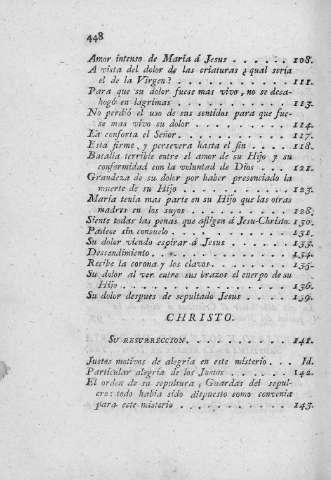 448
Amor intenso de Maria á Jesus . . . . . . 108.
A vista del dolor de las criaturas ¿ qual seria
el de la Virgen? . . . . . . . . . . . 111.
Para que su dolor fuese mas vivo, no se desa-
hogó en lagrimas . . . . . . . . . . . 113.
No perdió el uso de sus sentidos para que fue-
se mas vivo su dolor . . . . . . . . . . 114.
La conforta el Señor . . . . . . . . . . 117.
Está firme, y persevera hasta el fin . . . . 118.
Batalla terrible entre el amor de su Hijo y su
conformidad con la voluntad de Dios . . . . 121.
Grandeza de su dolor por haber presenciado la
muerte de su Hijo . . . . . . . . . . . 123.
María tenia mas parte en su Hijo que las otras
madres en los suyos . . . . . . . . . . 128.
Siente todas las penas que afligen á Jesu-Christo. 130.
Padece sin consuelo . . . . . . . . . . 132.
Su dolor viendo espirar á Jesus . . . . . . 133.
Descendimiento . . . . . . . . . . . . 134.
Recibe la corona y los clavos . . . . . . . 135.
Su dolor al ver entre sus brazos el cuerpo de su
Hijo . . . . . . . . . . . . . . . . 136.
Su dolor despues de sepultado Jesus . . . . 139.
CHRISTO.
SU RESURRECCION . . . . . . . . . . . 141.
Justos motivos de alegría en este misterio . . . Id.
Particular alegría de los Justos . . . . . . 142.
El orden de su sepultura, Guardas del sepul-
cro: todo habia sido dispuesto como convenia
para este misterio . . . . . . . . . . . 143.